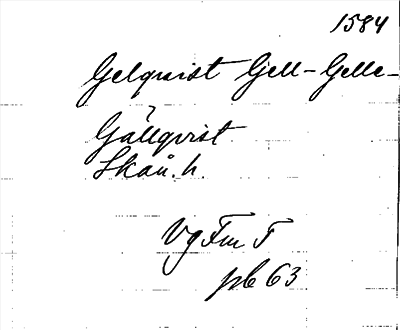 1584
Gelqvist Gjell- Gelle-
Gällqvist
Skån. h.
Vg Fm T
pb 63